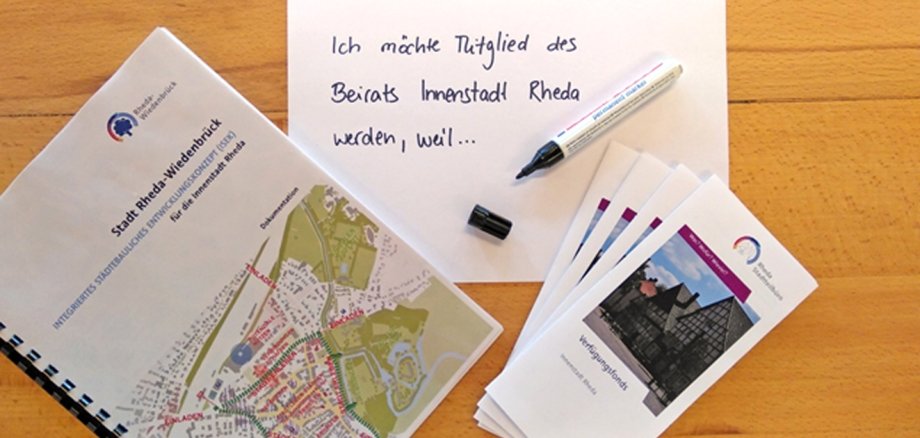 Ich möchte Mitglied des
Beirats Innenstadt Rheda
werden, weil...
permanent marker
Rheda-
Wiedenbrück
Stadt Rheda-Wiedenbrück
INTEGRIERTES STÄDTEBAULICHES ENTWICKLUNGSKONZEPT (ISEK)
für die Innenstadt Rheda
Dokumentation
EINLADEN
EINLADEN
EINLADEN
Rheda
Stadtteilbüro
Was? Wofür? Wieviel?
Verfügungsfonds
Innenstadt Rheda